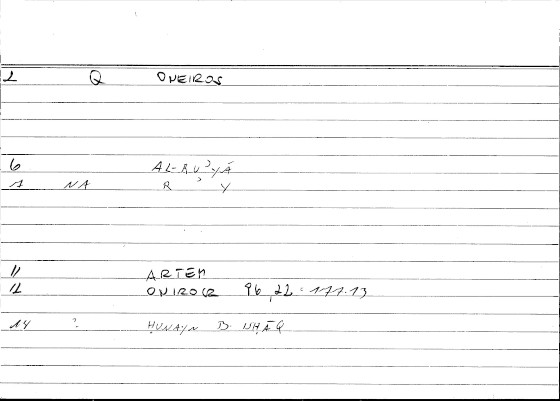 1 Q ONEIROS
6 AL-RUʾYĀ
7 NA R ʾ Y
11 ARTEM
12 ONIROCR 96,22 = 177.13
14 : ḤUNAYN B ISḤĀQ